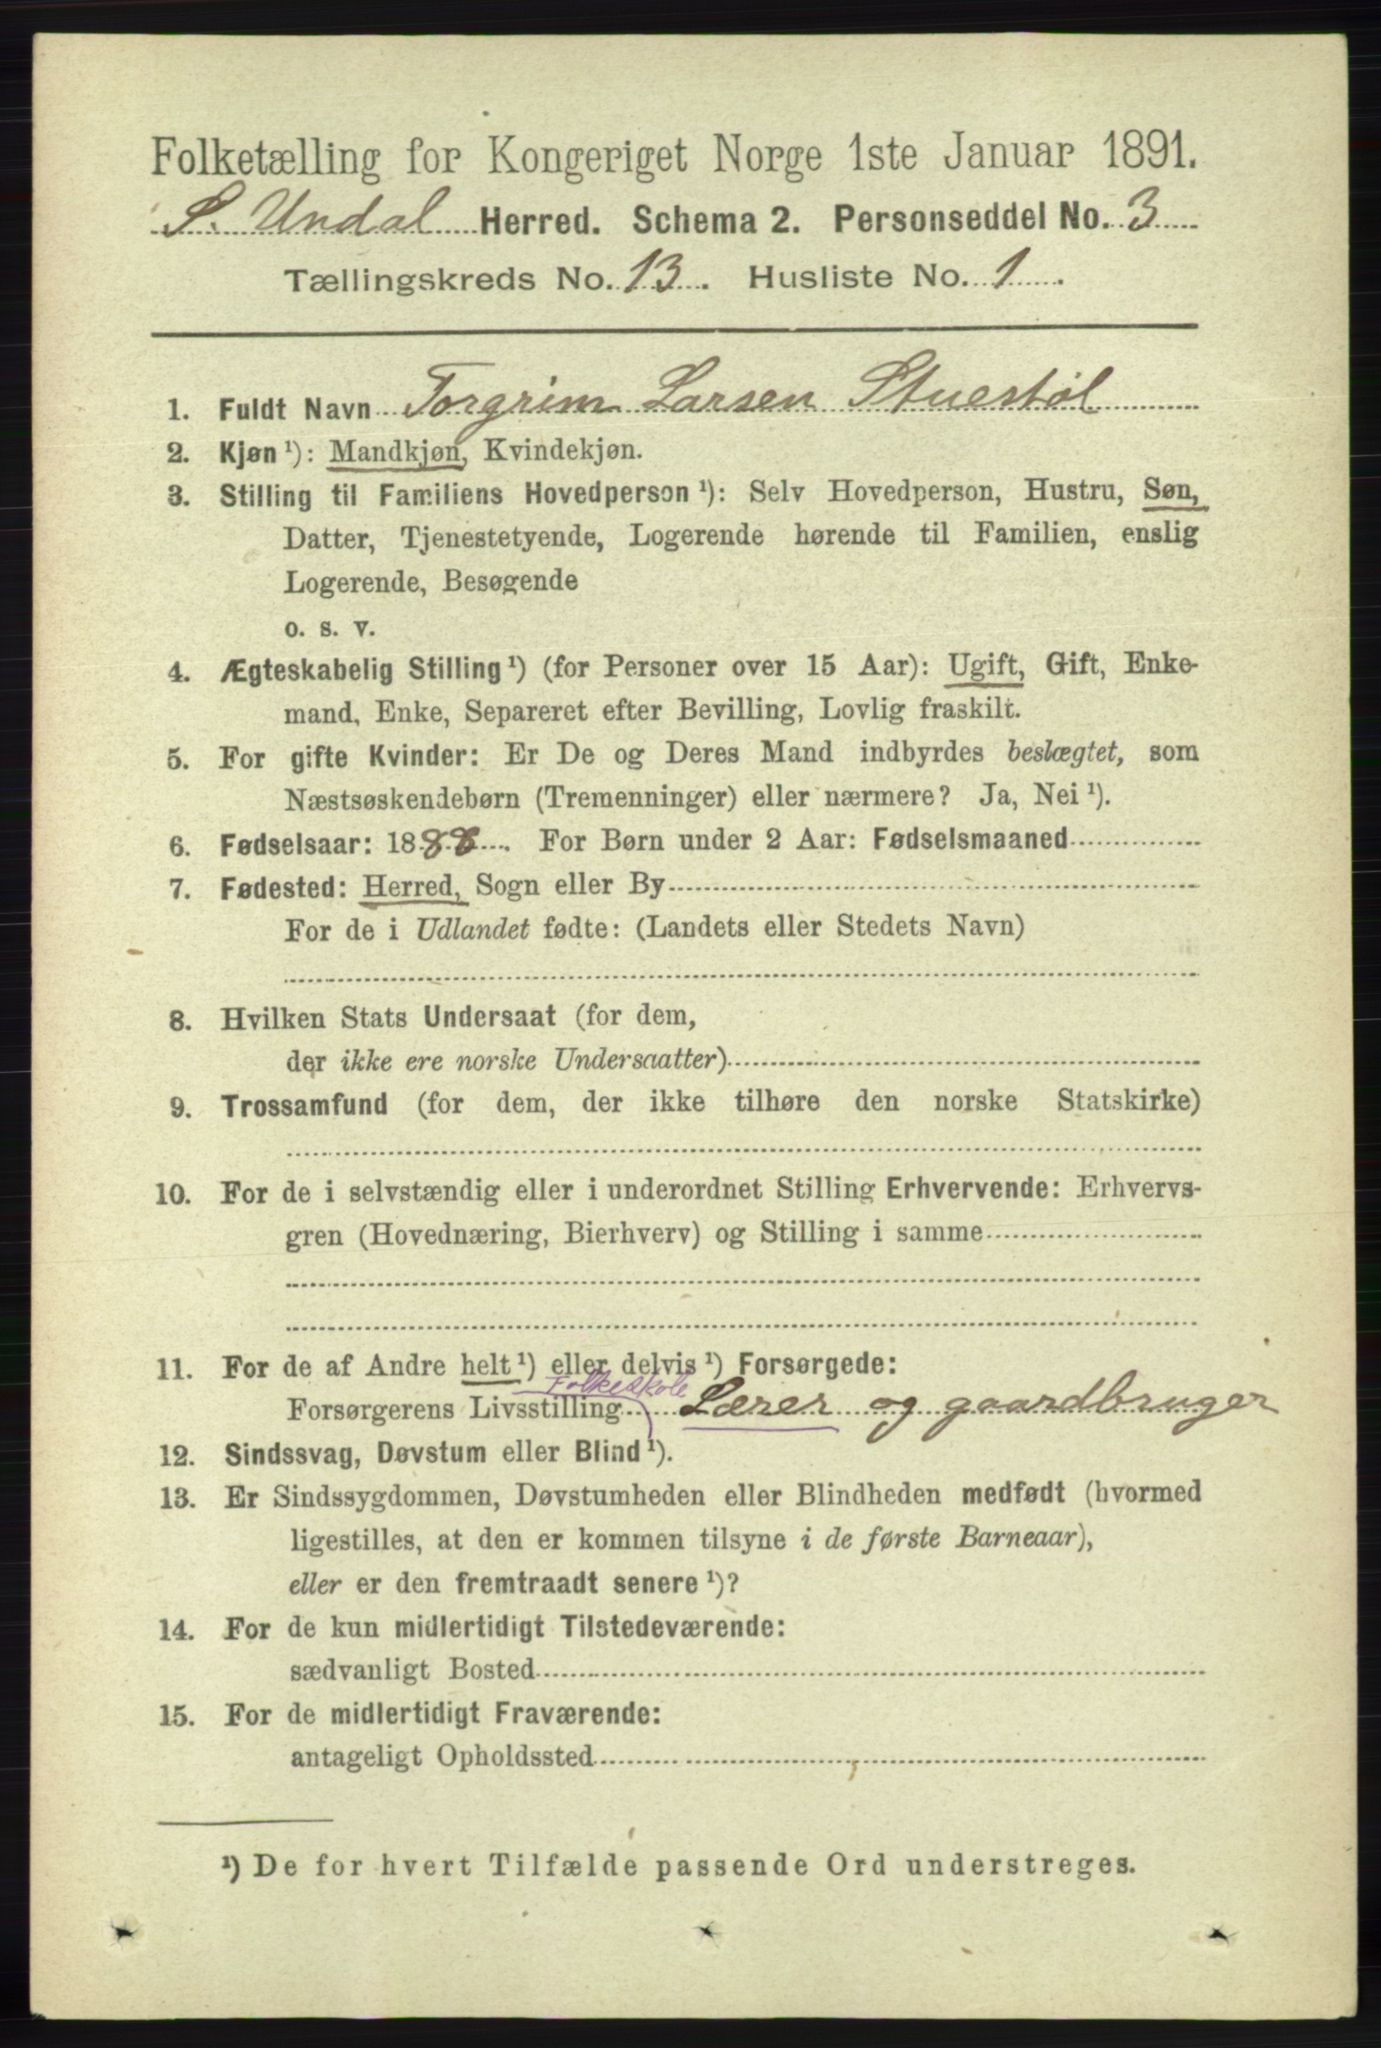 Folketælling for Kongeriget Norge 1ste Januar 1891.
S. Undal Herred. Schema 2. Personseddel No. 3
Tællingskreds No. 13. Husliste No. 1.
1. Fuldt Navn Torgrim Larsen Stuestøl
2. Kjøn ¹): Mandkjøn, Kvindekjøn.
3. Stilling til Familiens Hovedperson ¹): Selv Hovedperson, Hustru, Søn,
Datter, Tjenestetyende, Logerende hørende til Familien, enslig
Logerende, Besøgende
o. s. v.
4. Ægteskabelig Stilling ¹) (for Personer over 15 Aar): Ugift, Gift, Enke-
mand, Enke, Separeret efter Bevilling, Lovlig fraskilt.
5. For gifte Kvinder: Er De og Deres Mand indbyrdes beslægtet, som
Næstsøskendebørn (Tremenninger) eller nærmere? Ja, Nei ¹).
6. Fødselsaar: 1888. For Børn under 2 Aar: Fødselsmaaned
7. Fødested: Herred, Sogn eller By
For de i Udlandet fødte: (Landets eller Stedets Navn)
8. Hvilken Stats Undersaat (for dem,
der ikke ere norske Undersaatter)
9. Trossamfund (for dem, der ikke tilhøre den norske Statskirke)
10. For de i selvstændig eller i underordnet Stilling Erhvervende: Erhvervs-
gren (Hovednæring, Bierhverv) og Stilling i samme
11. For de af Andre helt ¹) eller delvis ¹) Forsørgede:
Folkeskole
Forsørgerens Livsstilling Lærer og gaardbruger
12. Sindssvag, Døvstum eller Blind ¹).
13. Er Sindssygdommen, Døvstumheden eller Blindheden medfødt (hvormed
ligestilles, at den er kommen tilsyne i de første Barneaar),
eller er den fremtraadt senere ¹)?
14. For de kun midlertidigt Tilstedeværende:
sædvanligt Bosted
15. For de midlertidigt Fraværende:
antageligt Opholdssted
¹) De for hvert Tilfælde passende Ord understreges.